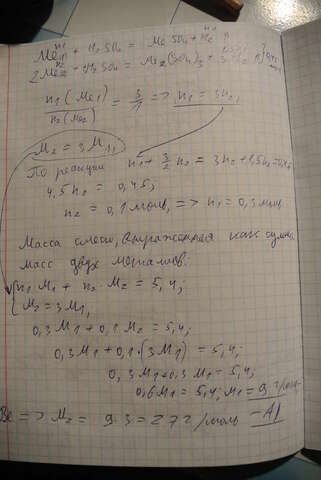 Me₁ + H₂SO₄ = MeSO₄ + H₂
2Me₂ + 3H₂SO₄ = Me₂(SO₄)₃ + 3H₂
n₁(Me₁)/n₂(Me₂) = 3/1 => n₁ = 3n₂;
M₂ = 3M₁;
По реакции n₁ + 3/2 n₂ = 3n₂ + 1,5n₂ =
4,5n₂ = 0,45;
n₂ = 0,1 моль, => n₁ = 0,3 моль
Масса смеси, выраженная как сумма
масс двух металлов:
n₁M₁ + n₂M₂ = 5,4;
M₂ = 3M₁,
0,3M₁ + 0,1M₂ = 5,4;
0,3M₁ + 0,1·(3M₁) = 5,4;
0,3M₁ + 0,3M₁ = 5,4;
0,6M₁ = 5,4; M₁ = 9 г/моль -
Be => M₂ = 9·3 = 27 г/моль - Al